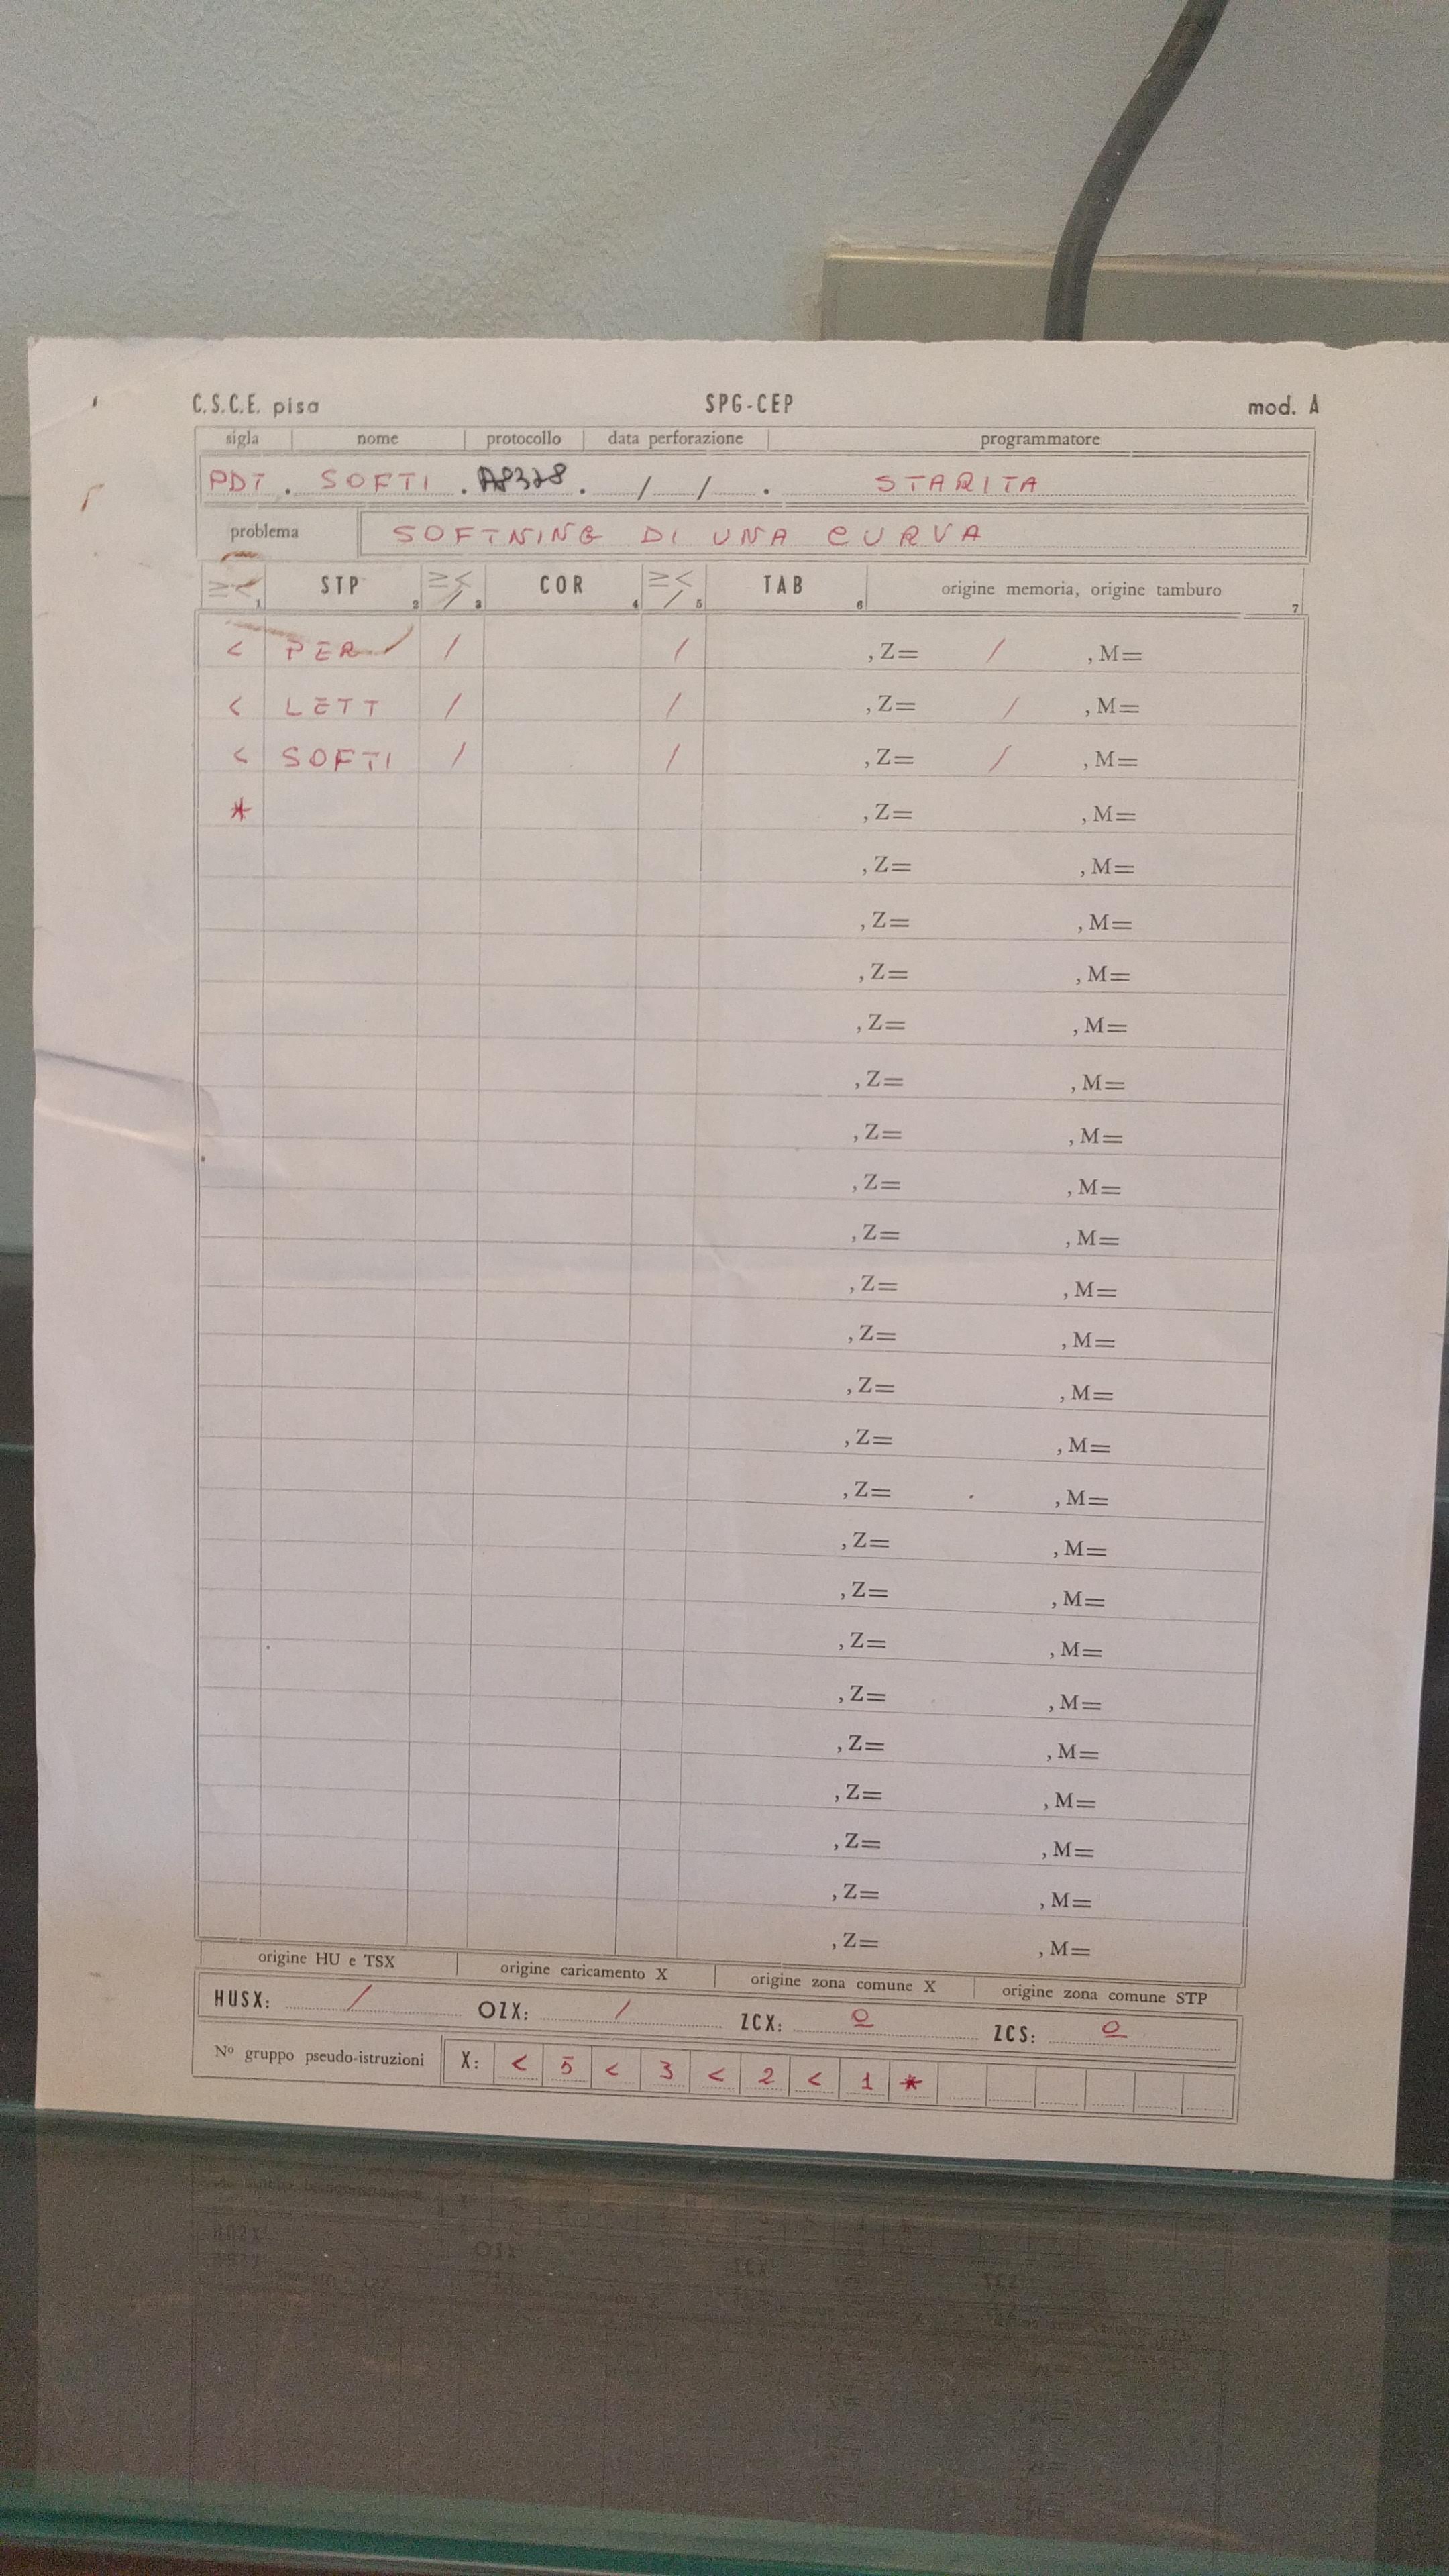 C.S.C.E. pisa SPG-CEP mod. A
sigla nome protocollo data perforazione programmatore
PDT . SOFTI . A8328 . / / . STARITA
problema SOFTNING DI UNA CURVA
≥< 1 STP 2 ≥< / 3 COR 4 ≥< / 5 TAB 6 origine memoria, origine tamburo 7
< PER / / , Z= / , M=
< LETT / / , Z= / , M=
< SOFTI / / , Z= / , M=
* , Z= , M=
, Z= , M=
, Z= , M=
, Z= , M=
, Z= , M=
, Z= , M=
, Z= , M=
, Z= , M=
, Z= , M=
, Z= , M=
, Z= , M=
, Z= , M=
, Z= , M=
, Z= , M=
, Z= , M=
, Z= , M=
, Z= , M=
, Z= , M=
, Z= , M=
, Z= , M=
, Z= , M=
, Z= , M=
, Z= , M=
origine HU e TSX origine caricamento X origine zona comune X origine zona comune STP
HUSX: / OZX: / ZCX: 0 ZCS: 0
Nº gruppo pseudo-istruzioni X: < 5 < 3 < 2 < 1 *